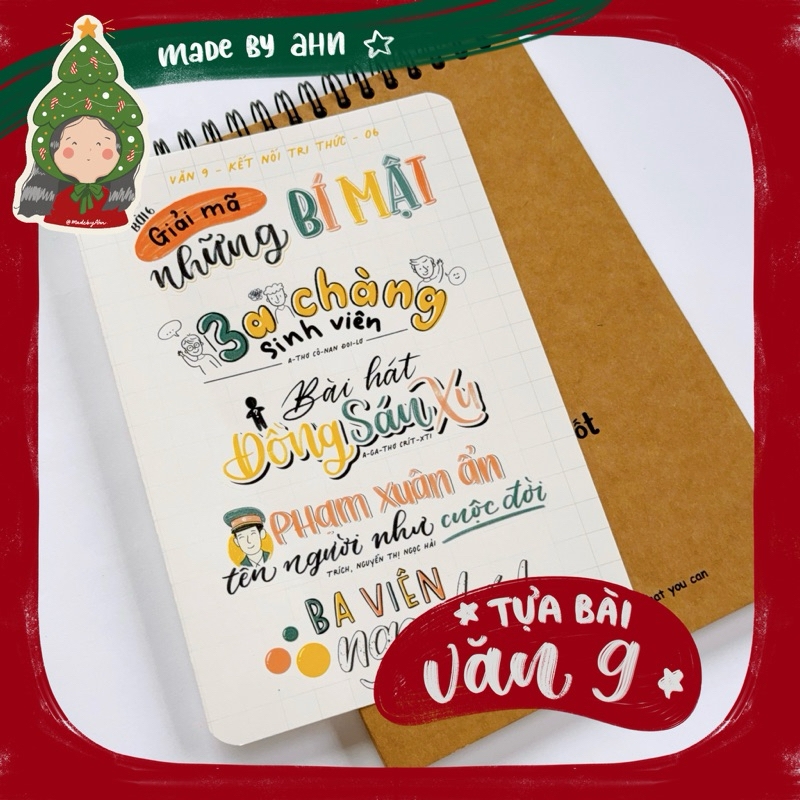 MADE BY AHN
@MadebyAhn
VĂN 9 - KẾT NỐI TRI THỨC - 06
BÀI 6
Giải mã
những BÍ MẬT
3 chàng
sinh viên
A-THƠ CÔ-NAN ĐOI-LƠ
Bài hát
Đồng Sáu Xu
A-GA-THƠ CRÍT-XTI
PHẠM XUÂN ẨN
tên người như cuộc đời
TRÍCH, NGUYỄN THỊ NGỌC HẢI
BA VIÊN
ốt
at you can
TỰA BÀI
Văn 9